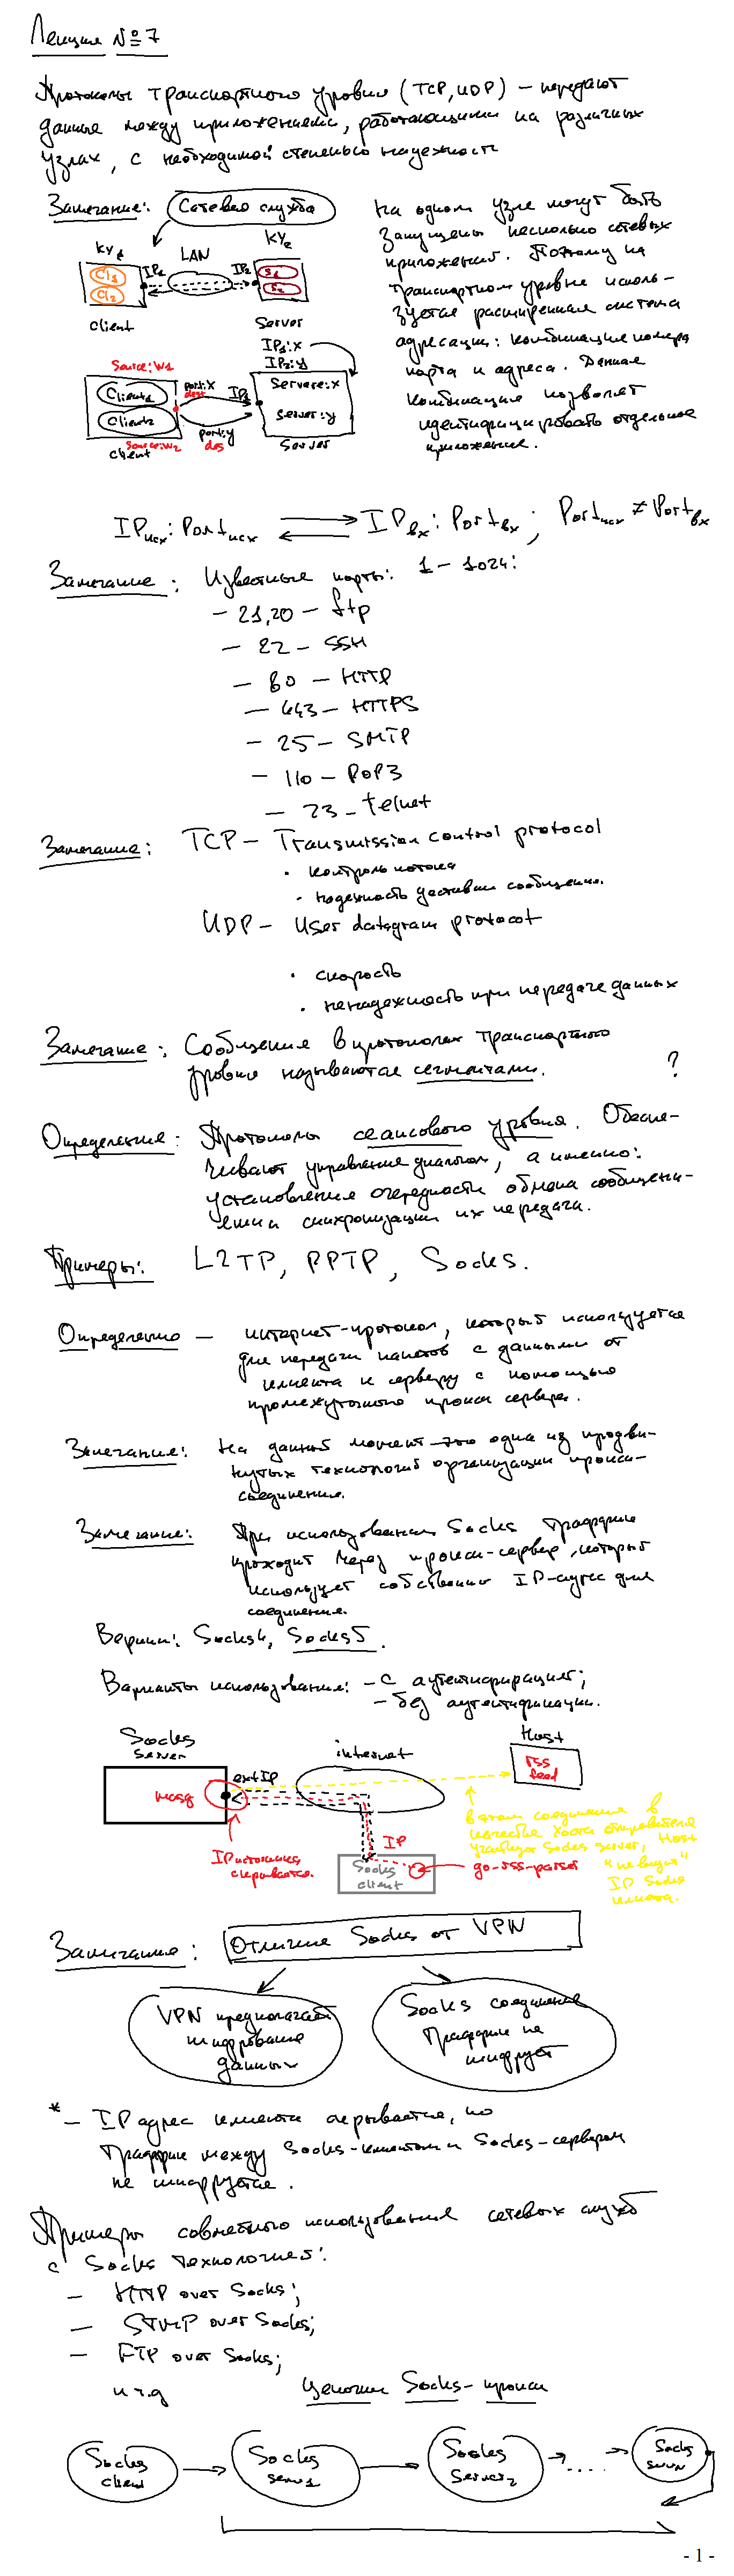 Лекция №7
Протоколы транспортного уровня (TCP, UDP) – передают
данные между приложениями, работающими на различных
узлах, с необходимой степенью надежности
Замечание: Сетевая служба
КУ1
LAN
КУ2
IP1
IP2
Cl1
Cl2
S1
S2
Client
Server
На одном узле могут быть
запущены несколько сетевых
приложений. Поэтому на
транспортном уровне исполь-
зуется расширенная система
адресации: комбинация номера
порта и адреса. Данная
комбинация позволяет
идентифицировать отдельное
приложение.
IP1:x
IP2:y
Source:W1
Client1
Client2
port:x
dest
IP2
Servere:x
Server:y
port:y
des
Source:W2
Client
Server
IPисх:Portисх IPвх:Portвх; Portисх ≠ Portвх
Замечание: Известные порты: 1 – 1024:
– 21,20 – ftp
– 22 – SSH
– 80 – HTTP
– 443 – HTTPS
– 25 – SMTP
– 110 – POP3
– 23 – telnet
Замечание: TCP – Transmission control protocol
· контроль потока
· надежность доставки сообщения.
UDP – User datagram protocol
· скорость
· ненадежность при передаче данных
Замечание: Сообщения в протоколах транспортного
уровня называются сегментами. ?
Определение: Протоколы сеансового уровня. Обеспе-
чивают управление диалогом, а именно:
установление очередности обмена сообщени-
ями и синхронизации их передачи.
Примеры: L2TP, PPTP, Socks.
Определение – интернет-протокол, который используется
для передачи пакетов с данными от
клиента к серверу с помощью
промежуточного прокси сервера.
Замечание: На данный момент это одна из продви-
нутых технологий организации прокси-
соединения.
Замечание: При использовании Socks траффик
проходит через прокси-сервер, который
использует собственный IP-адрес для
соединения.
Версии: Socks4, Socks5.
Варианты использования: – с аутентификацией;
– без аутентификации.
Socks
server
internet
Host
rss
feed
extIP
masq
IP источника
скрывается.
IP
Socks
client
go-rss-parser
в этом соединении в
качестве хоста отправителя
участвует Socks server, Host
"не видит"
IP Socks
клиента.
Замечание: Отличие Socks от VPN
VPN предполагает
шифрование
данных
Socks соединение
траффик не
шифрует
* – IP адрес клиента скрывается, но
траффик между Socks-клиентом и Socks-сервером
не шифруется.
Примеры совместного использования сетевых служб
с Socks технологией:
– HTTP over Socks;
– SMTP over Socks;
– FTP over Socks;
и т.д
Цепочки Socks-прокси
Socks
client
Socks
serv1
Socks
Server2
....
Socks
servN
- 1 -